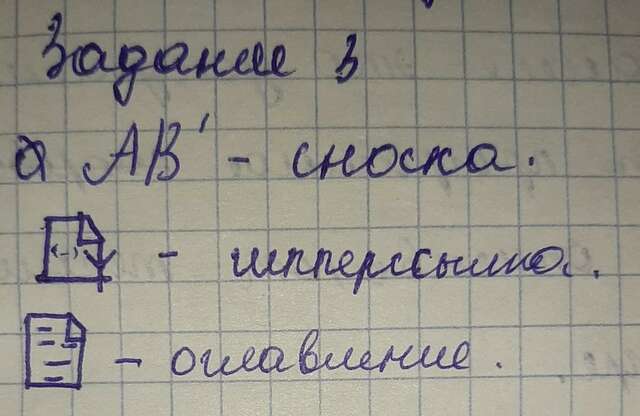 Задание 3
а АВ' - сноска.
- шпперссылка.
- оглавление.